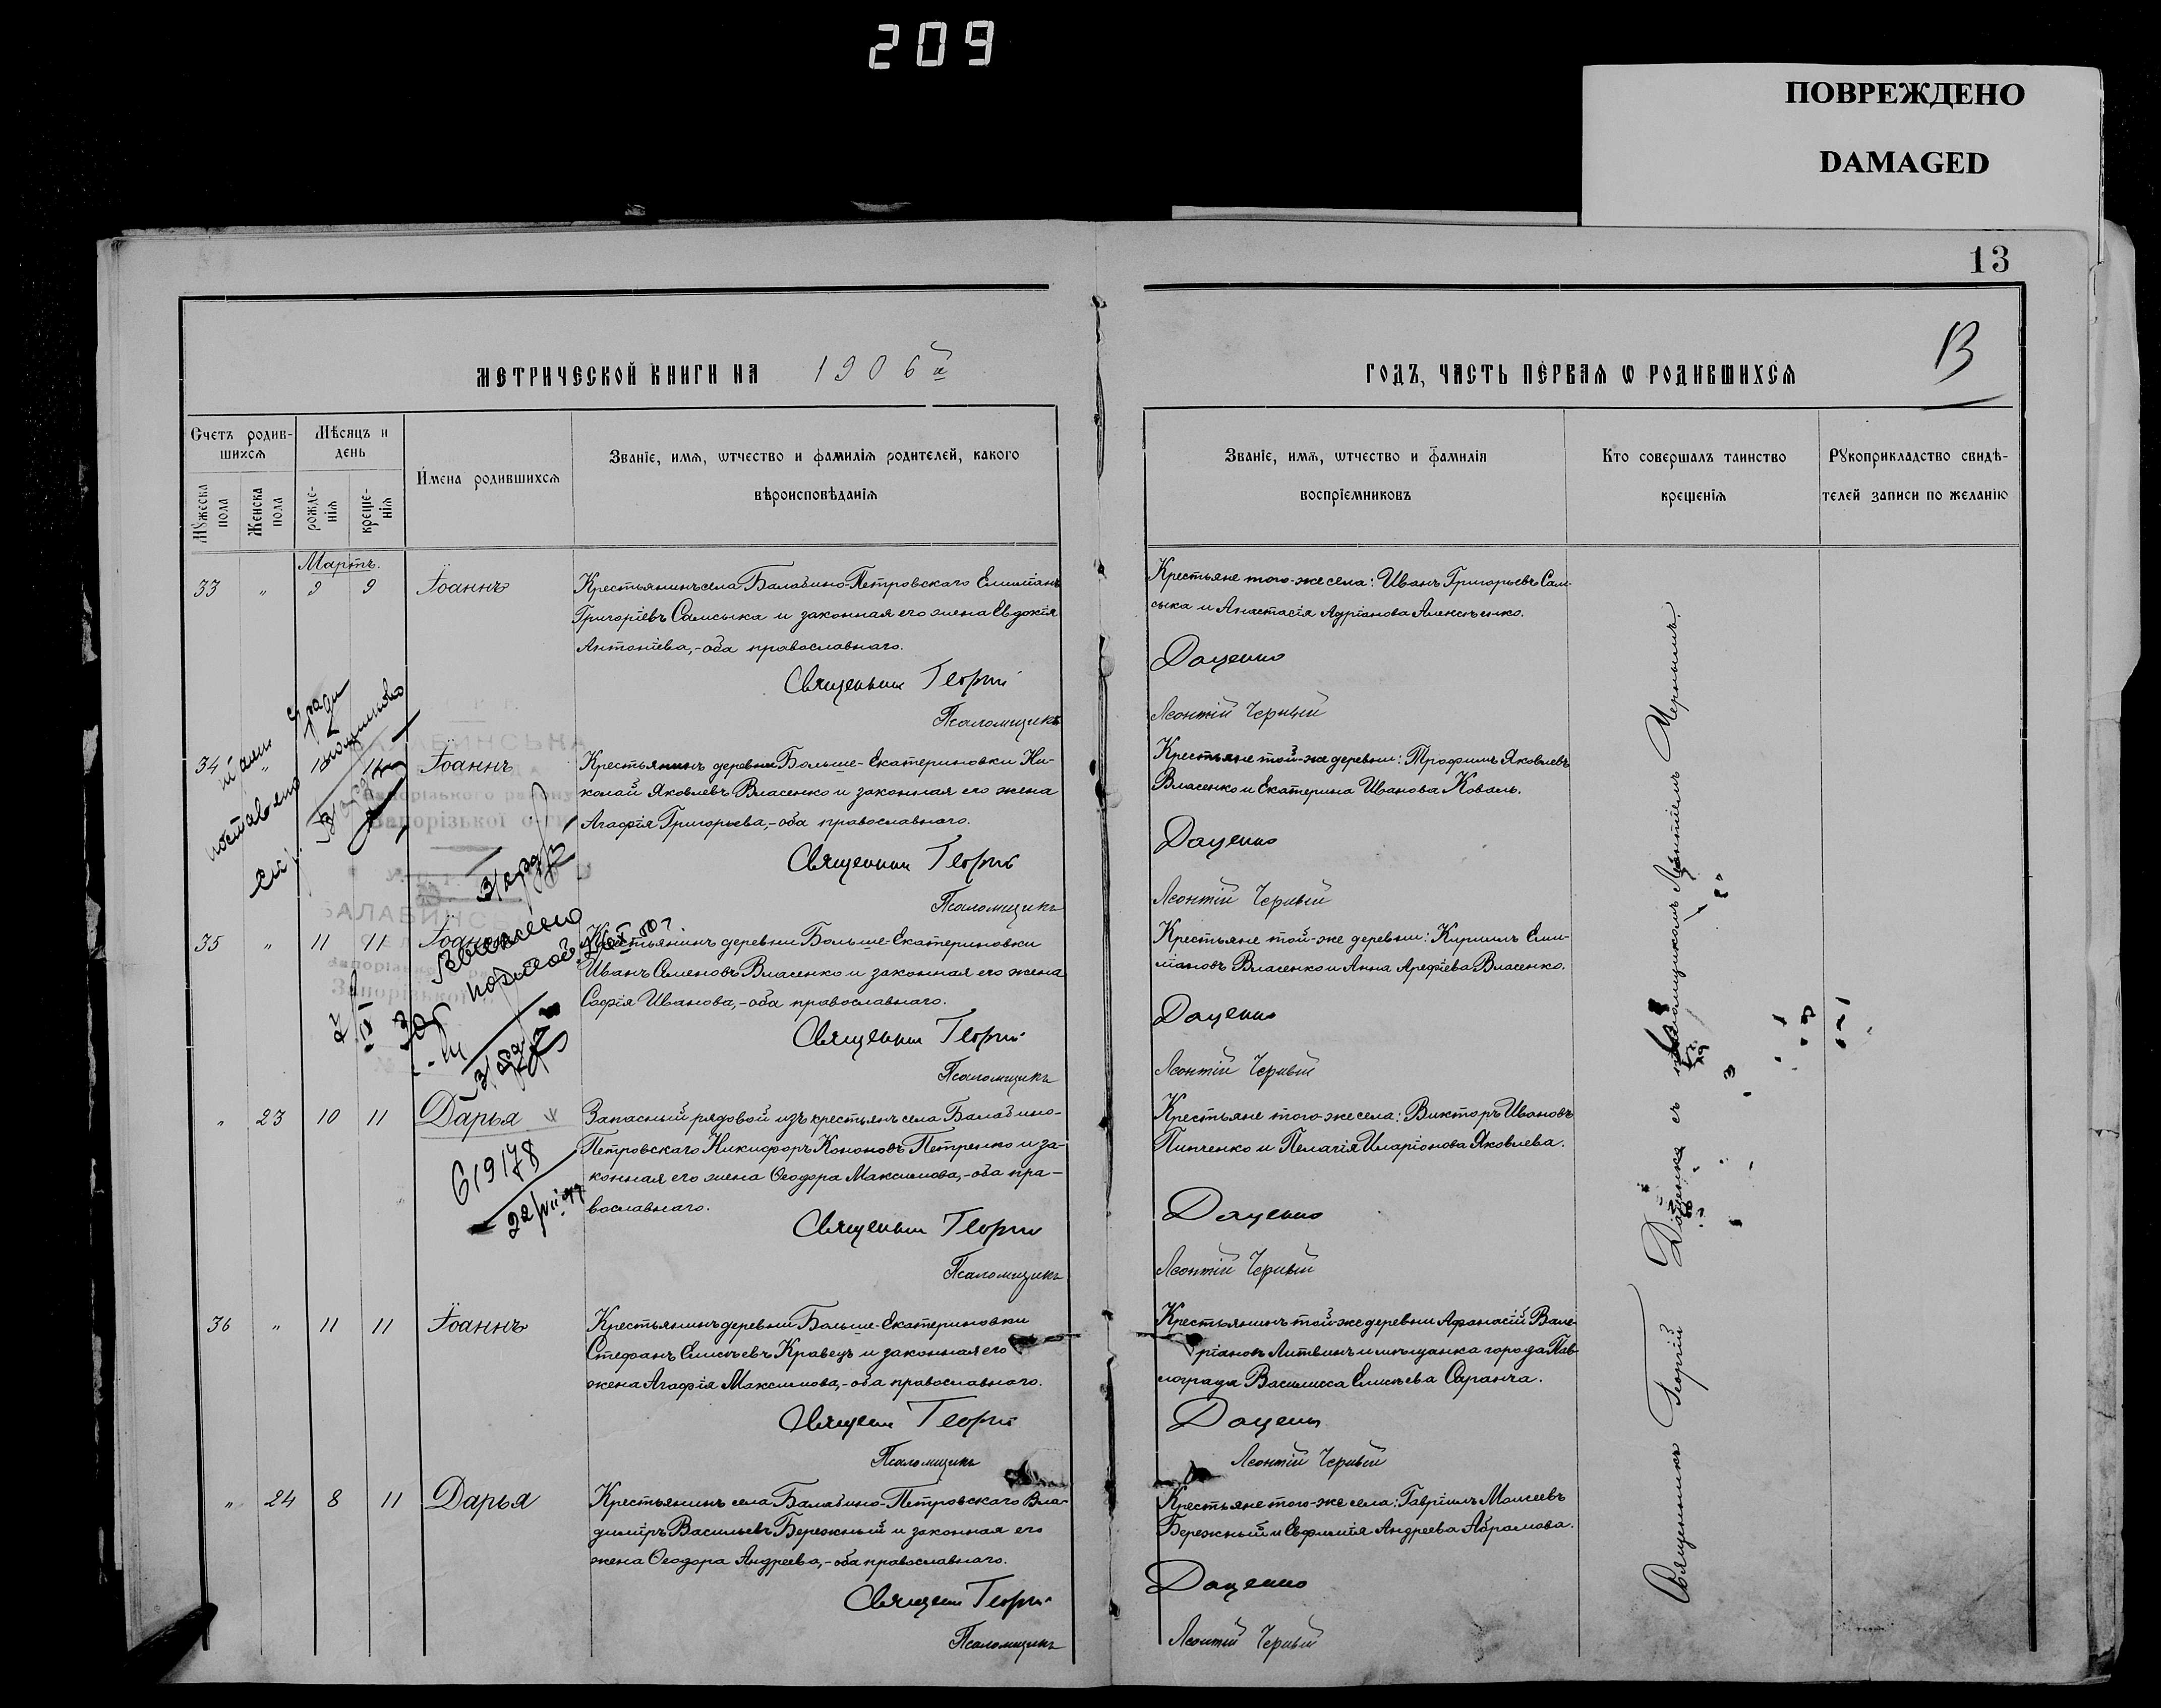 209
ПОВРЕЖДЕНО
DAMAGED
13
МЕТРИЧЕСКОЙ КНИГИ НА 1906й
ГОДЪ, ЧАСТЬ ПЕРВАЯ Ѡ РОДИВШИХСЯ
13
Счетъ родив-
шихсѧ
Мѣсяцъ и
день
Мꙋжеска
пола
Женска
пола
рожде-
нїѧ
креще-
нїѧ
Имена родившихсѧ
Званїе, имѧ, ѡтчество и фамилїѧ родителей, какого
вѣроисповѣданїѧ
Званїе, имѧ, ѡтчество и фамилїѧ
воспрїемниковъ
Кто совершалъ таинство
крещенїѧ
Рꙋкоприкладство свидѣ-
телей записи по желанїю
Мартъ.
33 " 9 9 Іоаннъ
Крестьянинъ села Балабино-Петровскаго Емиліанъ
Григоріевъ Самсыка и законная его жена Евдокія
Антоніева,-оба православнаго.
Священникъ Георгій
Псаломщикъ
Крестьяне того-же села: Иванъ Григорьевъ Сам-
сыка и Анастасія Адріанова Алексѣенко.
Даценко
Леонтій Черный
34 " Іоаннъ
Крестьянинъ деревни Больше-Екатериновки Ни-
колай Яковлевъ Власенко и законная его жена
Агафія Григорьева,-оба православнаго.
Священникъ Георгій
Псаломщикъ
Крестьяне той-же деревни: Трофимъ Яковлевъ
Власенко и Екатерина Иванова Коваль.
Даценко
Леонтій Черный
БАЛАБИНСЬКА
Запорізького району
Запорізької
35 " 11 11 Іоаннъ
Крестьянинъ деревни Больше-Екатериновки
Иванъ Семеновъ Власенко и законная его жена
Софія Иванова,-оба православнаго.
Священникъ Георгій
Псаломщикъ
Крестьяне той-же деревни: Кириллъ Еми-
ліановъ Власенко и Анна Арефіева Власенко.
Даценко
Леонтій Черный
БАЛАБИНСЬКА
" 23 10 11 Дарья
619178
22/VII
Запасный рядовой изъ крестьянъ села Балабино-
Петровскаго Никифоръ Кононовъ Петренко и за-
конная его жена Ѳеодора Максимова,-оба пра-
вославнаго.
Священникъ Георгій
Псаломщикъ
Крестьяне того-же села: Викторъ Ивановъ
Пипченко и Пелагія Иларіонова Яковлева.
Даценко
Леонтій Черный
36 " 11 11 Іоаннъ
Крестьянинъ деревни Больше-Екатериновки
Стефанъ Елисѣевъ Кравецъ и законная его
жена Агафія Максимова,-оба православнаго.
Священникъ Георгій
Псаломщикъ
Крестьянинъ той-же деревни Афанасій Вале-
ріановъ Литвинъ и мѣщанка города Пав-
лограда Василисса Елисѣева Саранча.
Даценко
Леонтій Черный
" 24 8 11 Дарья
Крестьянинъ села Балабино-Петровскаго Вла-
димиръ Васильевъ Бережный и законная его
жена Ѳеодора Андреева,-оба православнаго.
Священникъ Георгій
Псаломщикъ
Крестьяне того-же села: Гавріилъ Моисеевъ
Бережный и Евфимія Андреева Абрамова.
Даценко
Леонтій Черный
Священникъ Георгій Даценко съ псаломщикомъ Леонтіемъ Чернымъ.